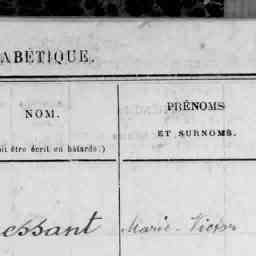 ABÉTIQUE.
NOM.
PRÉNOMS
ET SURNOMS.
oit être écrit en bâtarde.)
essant Marie-Victor